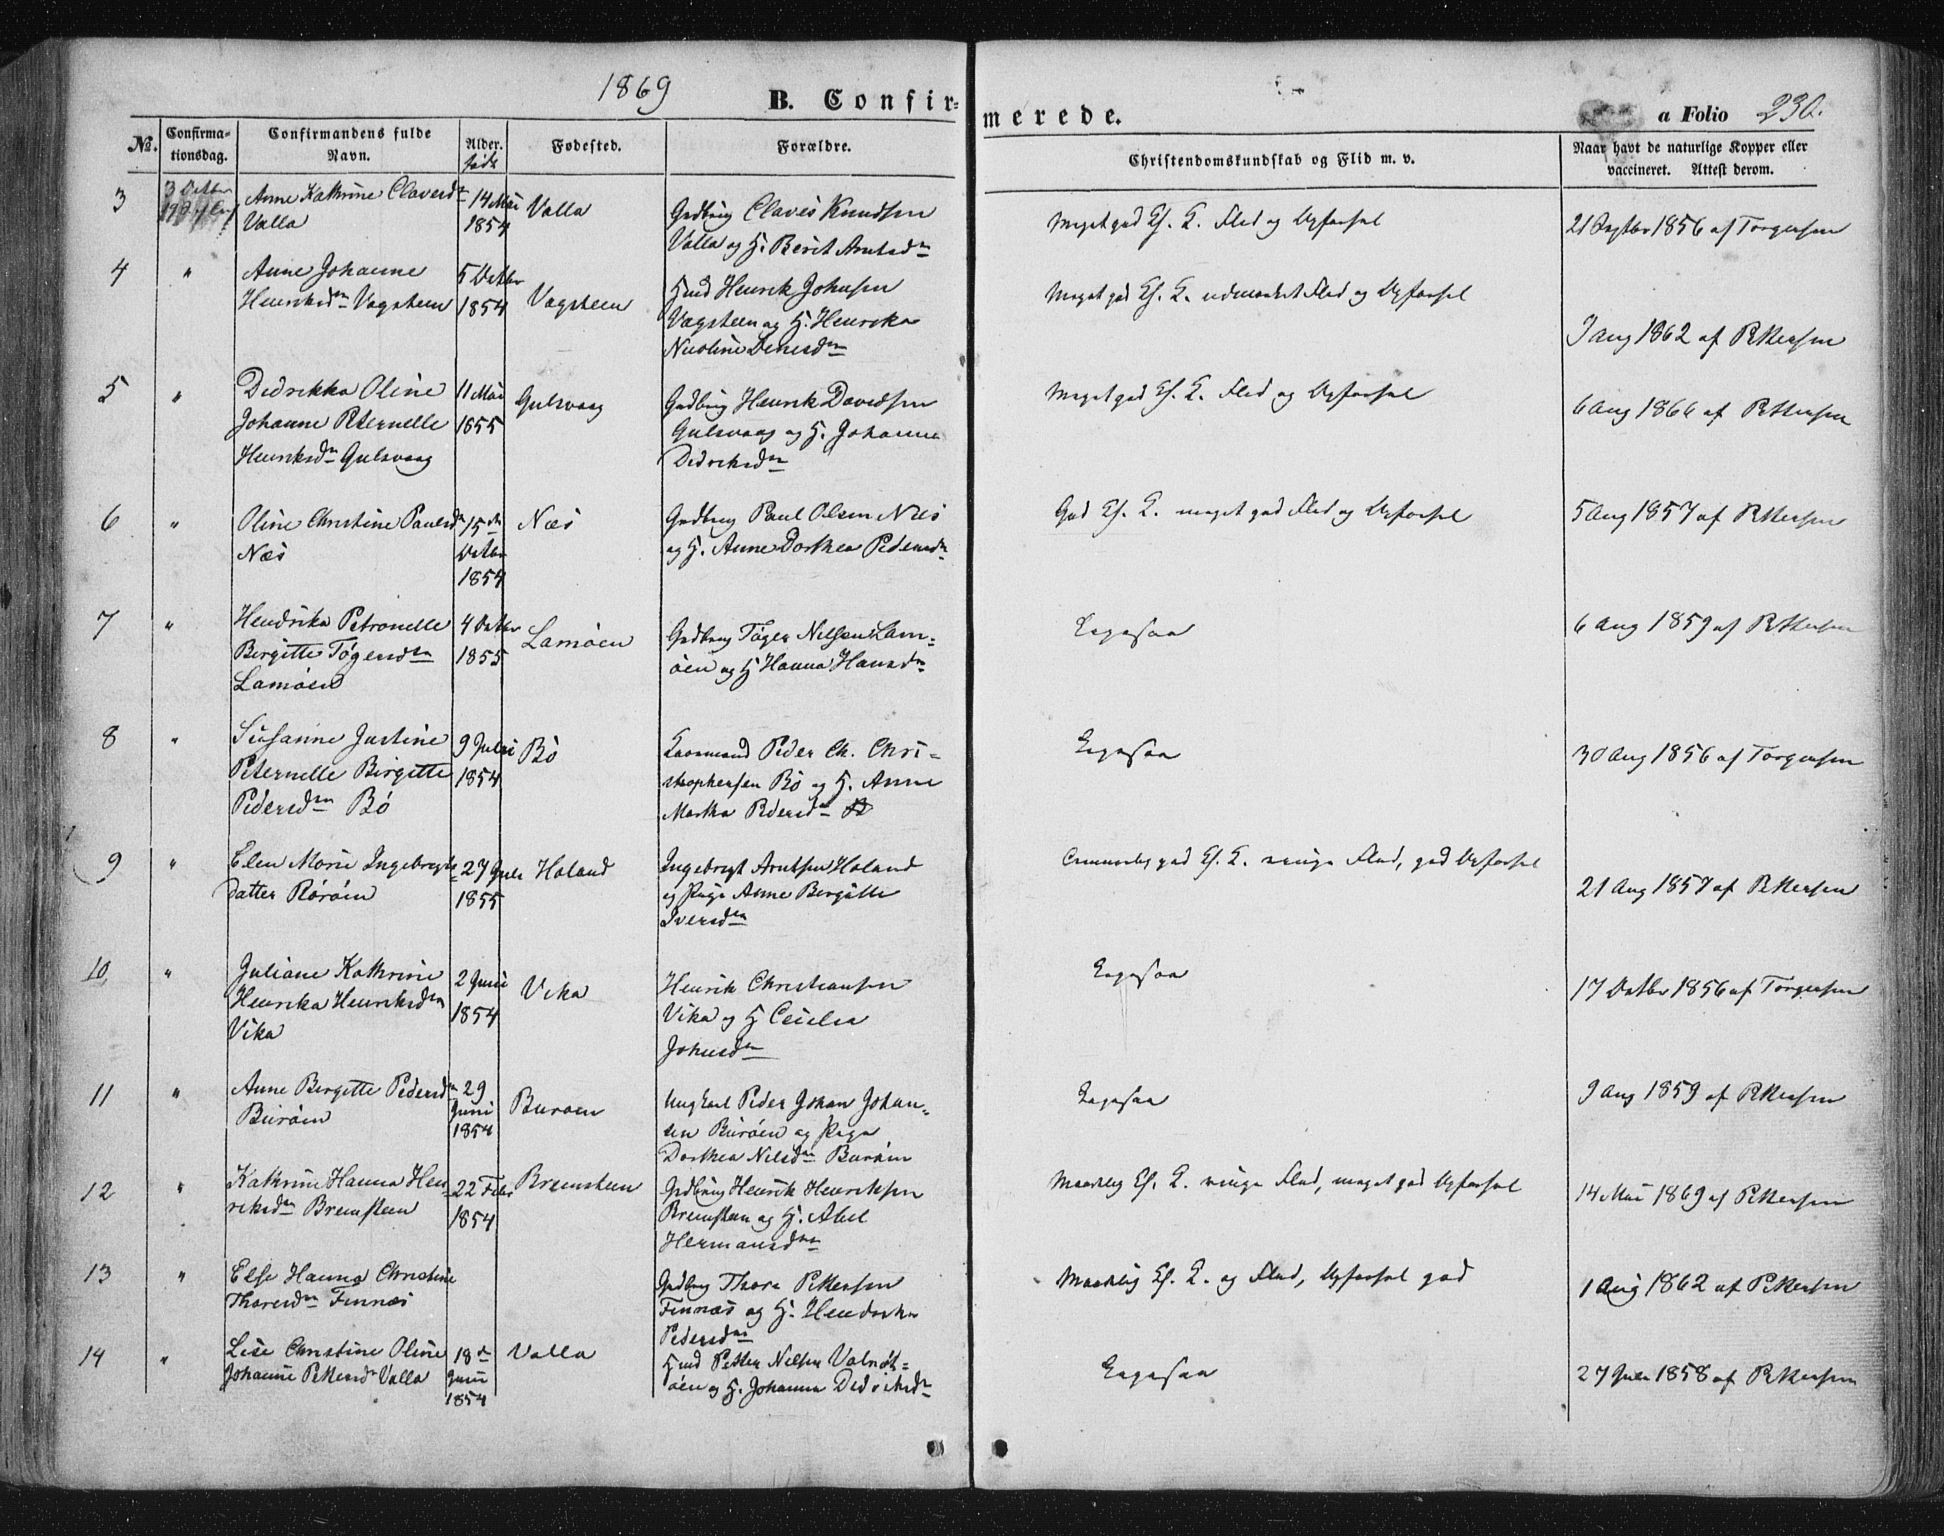 1869
B. Confir-
merede.
a Folio 230.
No.
Confirma-
tionsdag.
Confirmandens fulde
Navn.
Alder.
født
Fødested.
Forældre.
Christendomskundskab og Flid m. v.
Naar havt de naturlige Kopper eller
vaccineret. Attest derom.
3
Anne Kathrine Clavesdn
Valla
14 Mai
1854
Valla
Gadbrug Claves Knudsen
Valla og H. Berit Arntsdn
Meget god Kf. K. Flid og Opførsel
21 Septbr 1856 af Torgersen
4
"
Anne Johanne
Henriksdn Vagsteen
5 Octbr
1854
Vagsteen
Hmd Henrik Johnsen
Vægsteen og H. Henrika
Nicoline Denesdn
Meget god Kf. K. udmærket Flid og Opførsel
3 Aug 1862 af Pettersen
5
"
Didrikka Oline
Johanne Peternelle
Henriksdn Gulsvaag
11 Mai
1855
Gulsvaag
Gadbrug Henrik Davidsen
Gulsvaag og H. Johanna
Didriksdn
Meget god Kf. K. Flid og Opførsel
6 Aug 1866 af Pettersen
6
"
Oline Christine Paulsdn
Næs
15de
Octbr
1854
Næs
Gadbrug Paul Olsen Næs
og H. Anne Dorthea Pedersdn
God Kf. K. meget god Flid og Opførsel
5 Aug 1857 af Pettersen
7
"
Hendrika Petronelle
Birgitte Tøgersdn
Lamøen
4 Octbr
1855
Lamøen
Gadbrug Tøger Nilsen Lam-
øen og H Hanna Hansdn
Ligesaa
6 Aug 1859 af Pettersen
8
"
Susanne Justine
Peternelle Birgitte
Pedersdn Bø
9 Juli
1854
Bø
Peder Ch. Chri-
stophersen Bø og H. Anne
Martha Pedersdn
Ligesaa
30 Aug 1856 af Torgersen
9
"
Elen Marie Ingebrigts-
datter Rørøen
27 Juli
1855
Holand
Ingebrigt Arntsen Holand
og Pige Anne Birgitte
Iversdn
god Kf. K. ringe Flid, god Opførsel
21 Aug 1857 af Pettersen
10
"
Juliane Kathrine
Henrika Henriksdn
Vika
2 Juni
1854
Vika
Henrik Christiansen
Vika og H Cecilia
Johnsdn
Ligesaa
17 Octbr 1856 af Torgersen
11
"
Anne Birgitte Pedersdn
Burøen
29
Juni
1854
Burøen
Ungkarl Peder Johan Johan-
sen Burøen og Pige
Dorthea Nilsdn Burøen
Ligesaa
9 Aug 1859 af Pettersen
12
"
Kathrine Hanna Hen-
riksdn Bremsteen
22 Febr
1854
Bremsteen
Gadbrug Henrik Henriksen
Bremsteen og H. Abel
Hermansdn
Maadelig Kf. K. ringe Flid, meget god Opførsel
14 Mai 1869 af Pettersen
13
"
Else Hanna Christine
Tharesdn Finnæs
Gadbrug Thore Pettersen
Finnæs og H. Hendrika
Pedersdn
Maadelig Kf. K. og Flid, Opførsel god
1 Aug 1862 af Pettersen
14
"
Lise Christine Oline
Johanne Pettersdn Valla
18de
Juni
1854
Valla
Hmd Petter Nilsen Valnøt-
øen og H. Johanna Didriksdn
Ligesaa
27 Juli 1858 af Pettersen